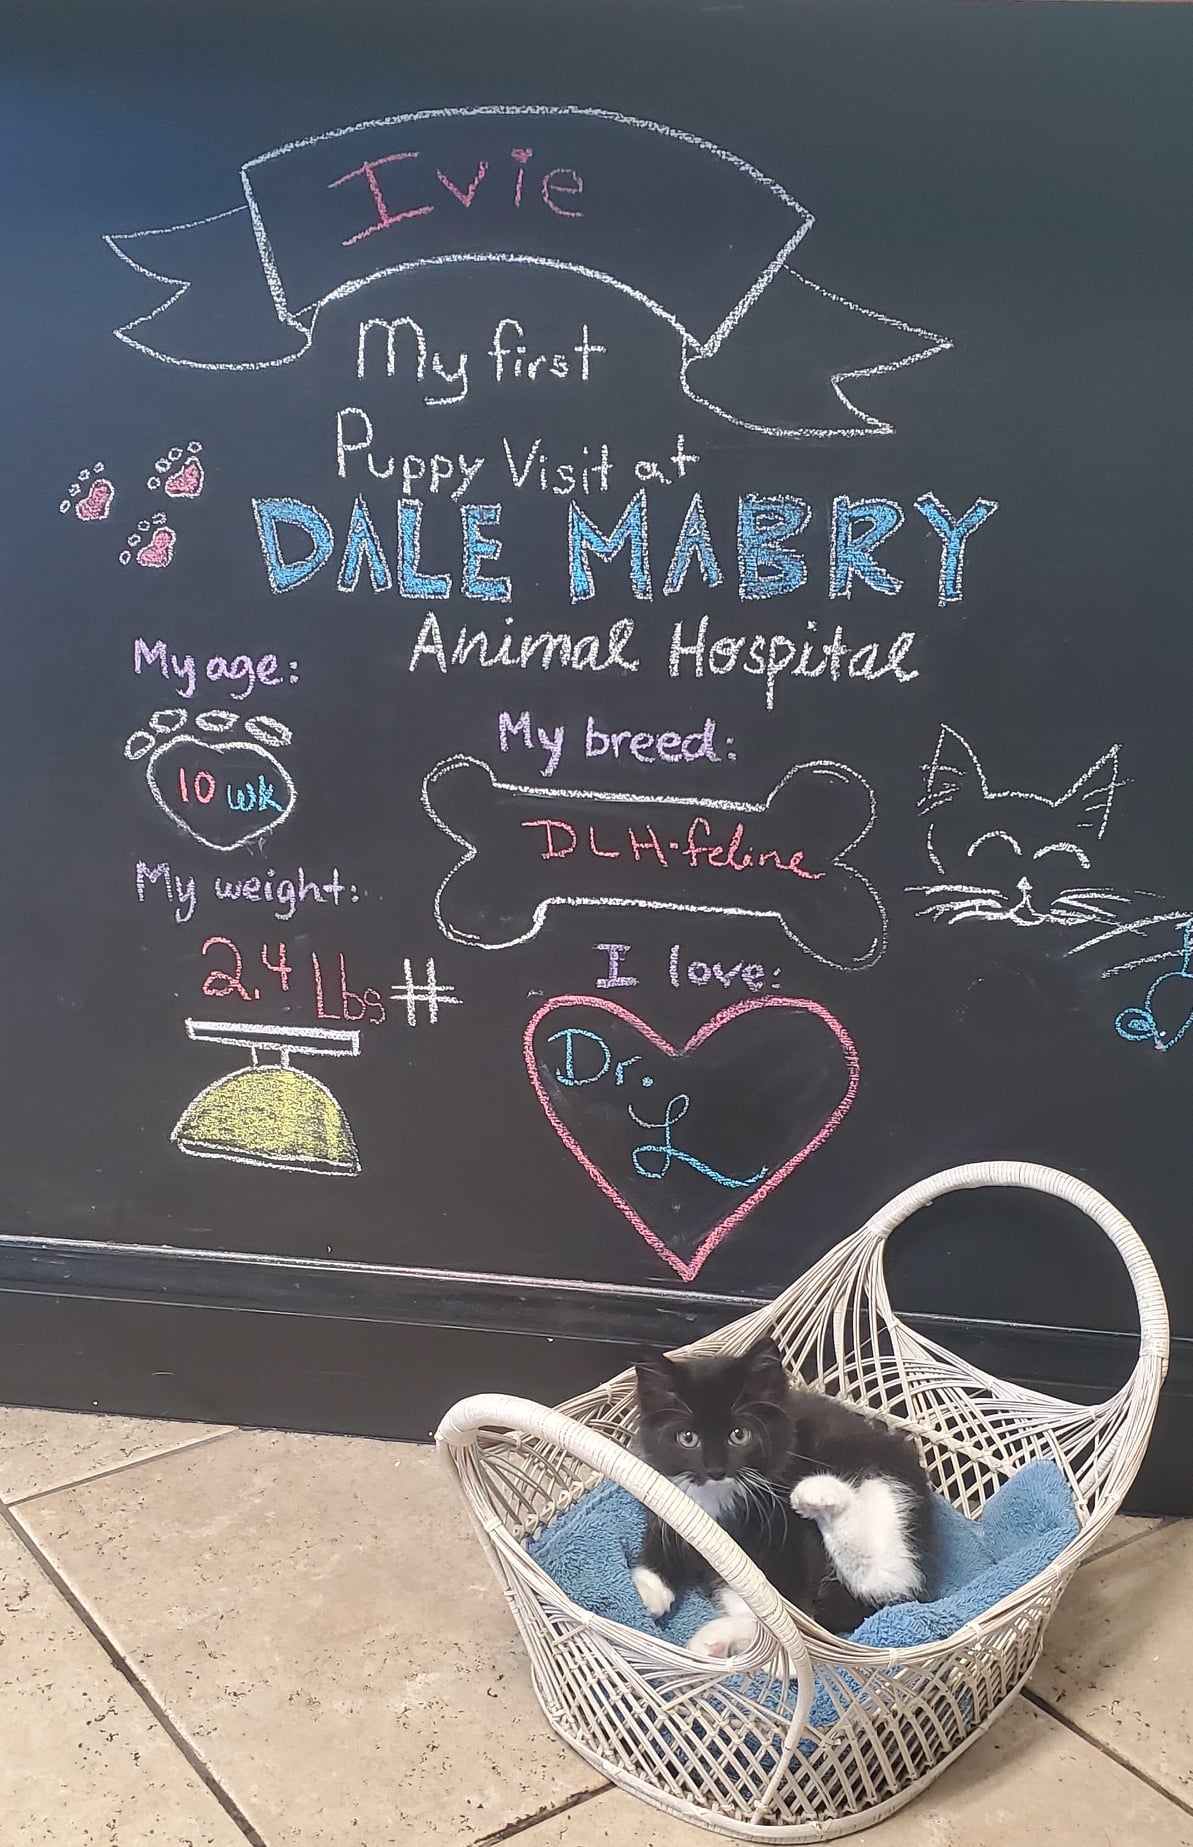 Ivie
My first
Puppy Visit at
DALE MABRY
Animal Hospital
My age:
10 wk
My breed:
DLH-feline
My weight:
2.4 Lbs #
I love:
Dr.
L